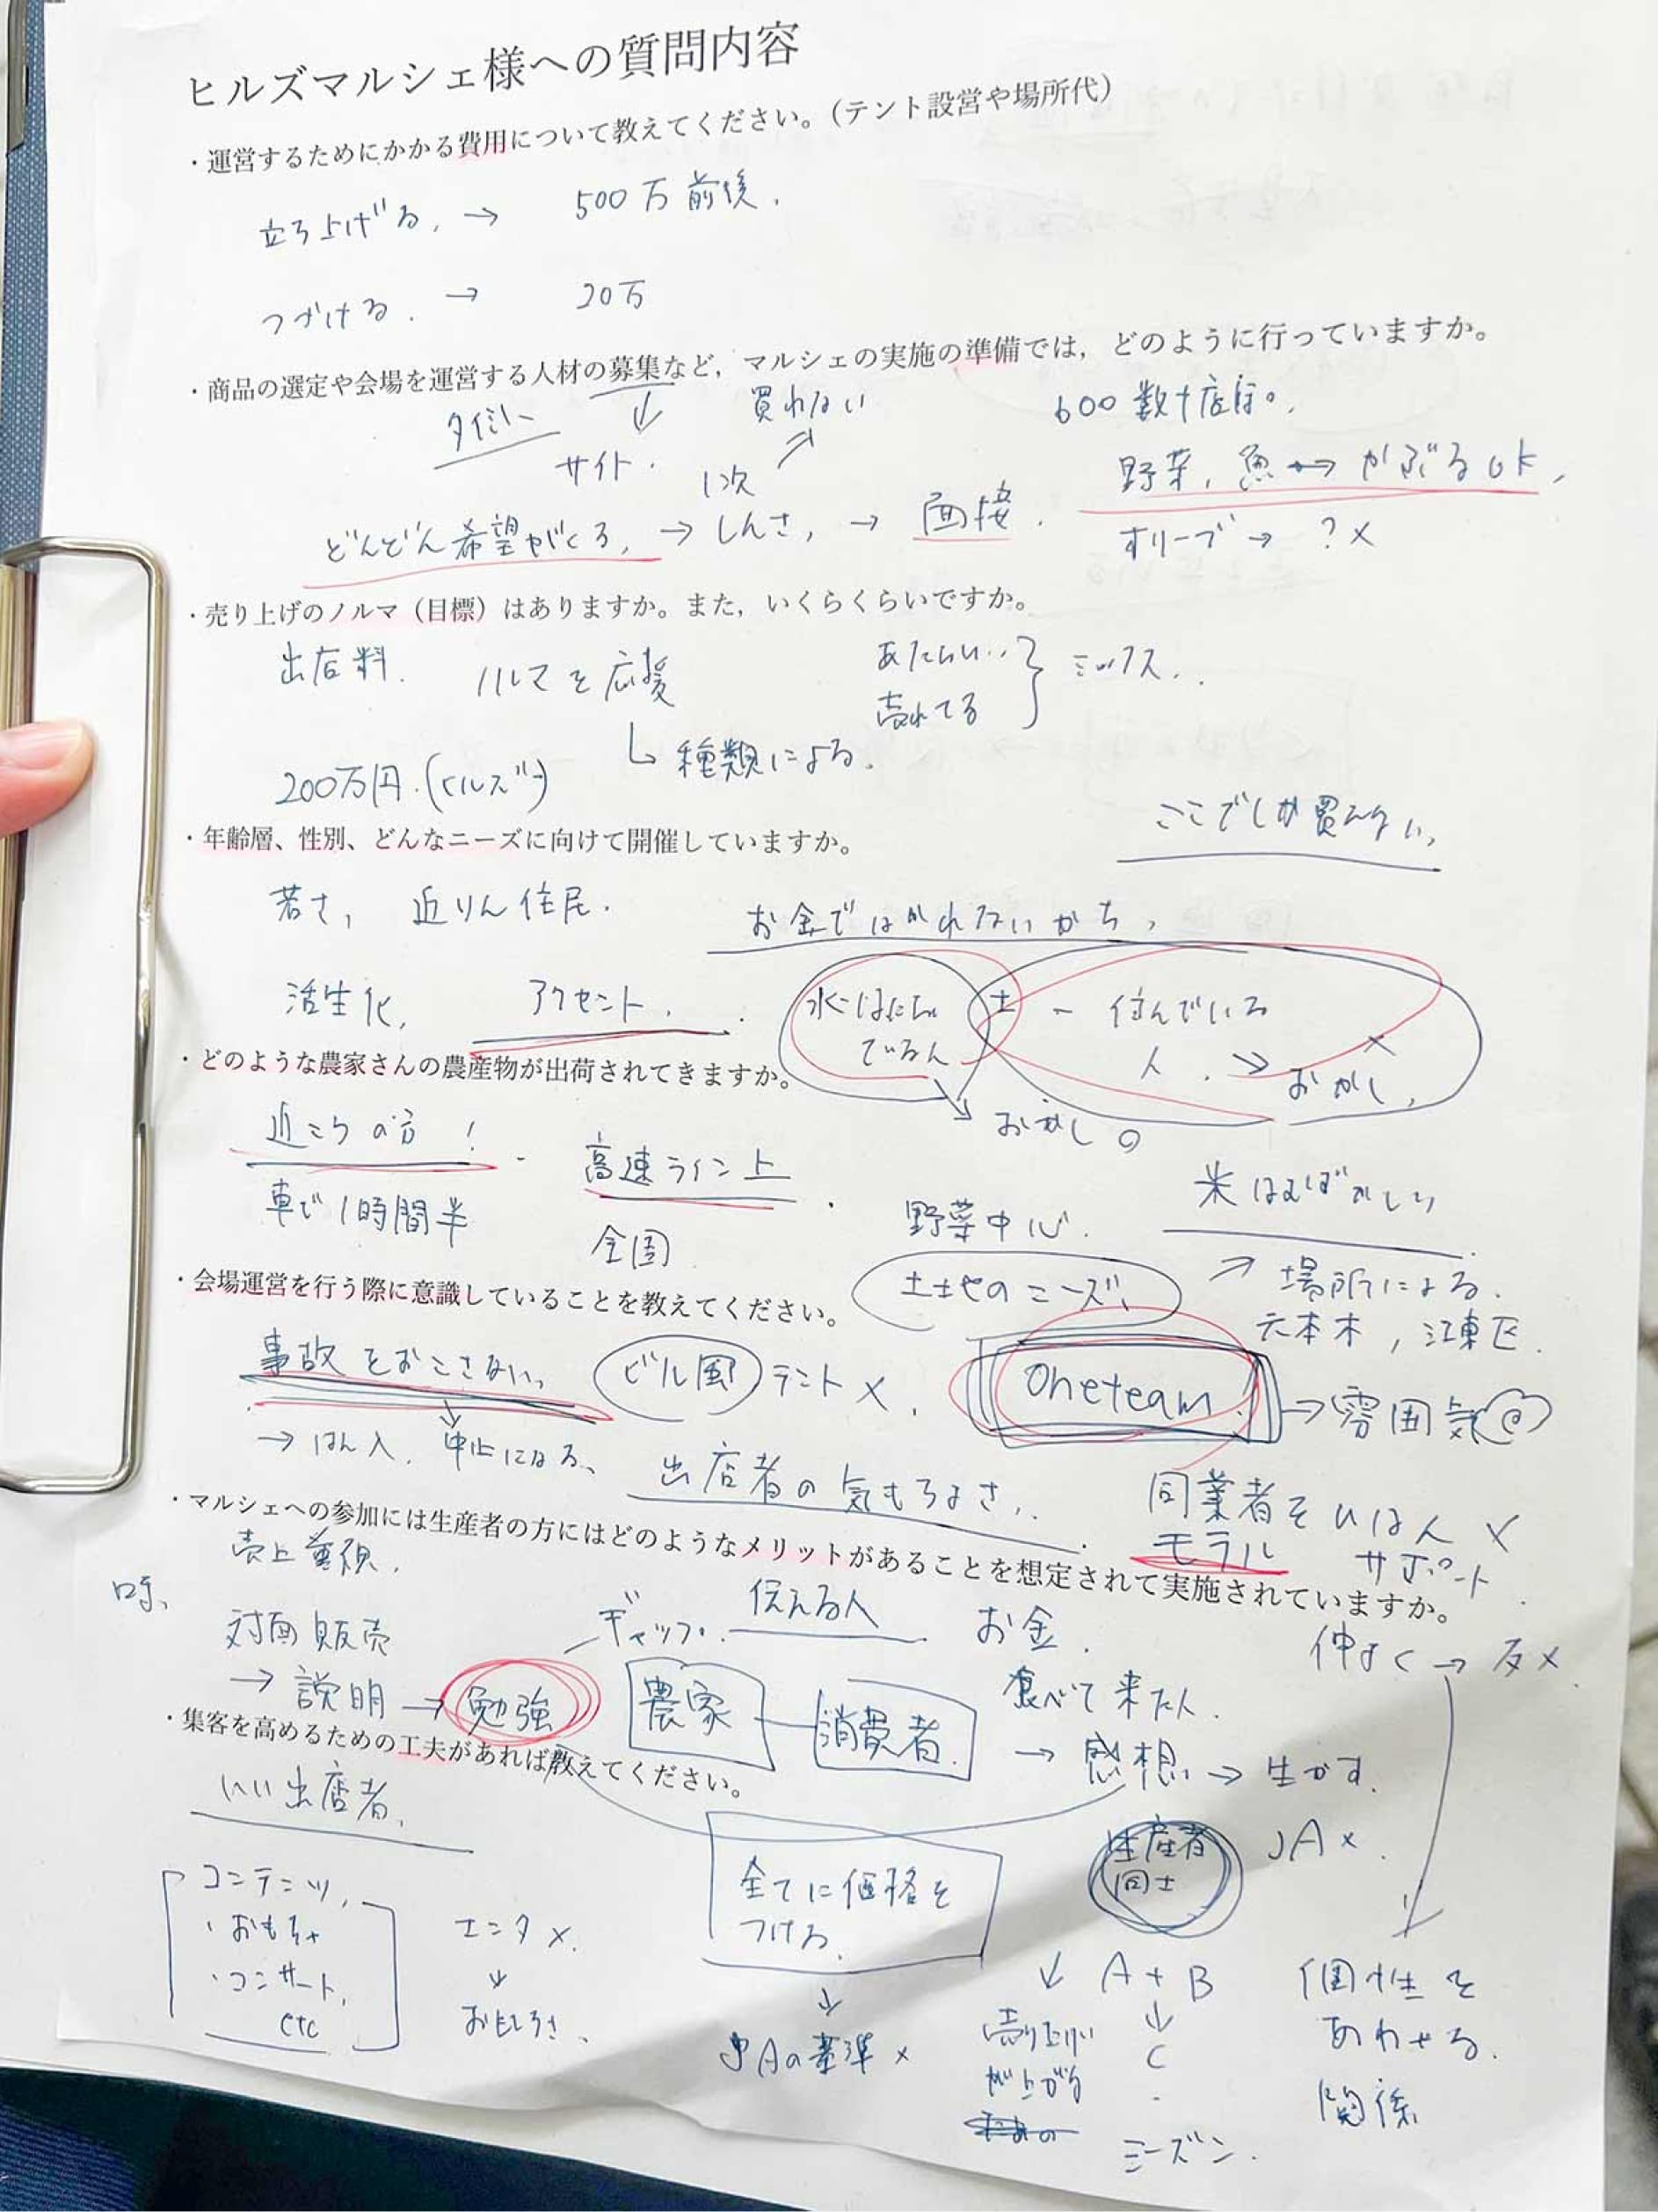 ヒルズマルシェ様への質問内容
・運営するためにかかる費用について教えてください。（テント設営や場所代）
立ち上げる，→ 500万前後．
つづける．→ 20万
・商品の選定や会場を運営する人材の募集など，マルシェの実施の準備では，どのように行っていますか。
買れない
600数十店舗。
サイト．
1次
野菜，魚 → かぶるOK，
どんどん希望がくる，→ しんさ，→ 面接．
オリーブ → ？×
・売り上げのノルマ（目標）はありますか。また，いくらくらいですか。
出店料．
ノルマを応援
売れてる
ミックス．．
↳ 種類による．
200万円．(ヒルズ)
ここでしか買えない，
・年齢層、性別、どんなニーズに向けて開催していますか。
若さ， 近りん住民．
お金ではかれないかち，
活生化， アクセント，
土 - 住んでいる
人．
おかし，
・どのような農家さんの農産物が出荷されてきますか。
おかし ○
近ころの方！
高速ライン上
車で1時間半
全国
野菜中心．
米
場所による．
六本木，江東区．
・会場運営を行う際に意識していることを教えてください。
土地のニーズ，
事故をおこさない，
ビル風 テント×．
Oneteam. → 雰囲気
→ はん入． 中止になる、
出店者の気もちよさ，．
同業者をひはん ×
モラル サポート．
・マルシェへの参加には生産者の方にはどのようなメリットがあることを想定されて実施されていますか。
売上重視．
対面販売
→ 説明 → 勉強
ギャップ． 伝える人 お金．
仲よく → 反×
農家 消費者．
食べて来た人．
→ 感想， → 生かす．
・集客を高めるための工夫があれば教えてください。
いい出店者，
コンテンツ，
・おもちゃ
・コンサート，
etc
エンタ×．
↓
おもしろさ、
全てに価格を
つける．
↓
JAの基準×
生産者
同士
JA×．
↓ A＋B
↓
C
売り上げ
が上がる
シーズン．
個性を
あわせる．
関係